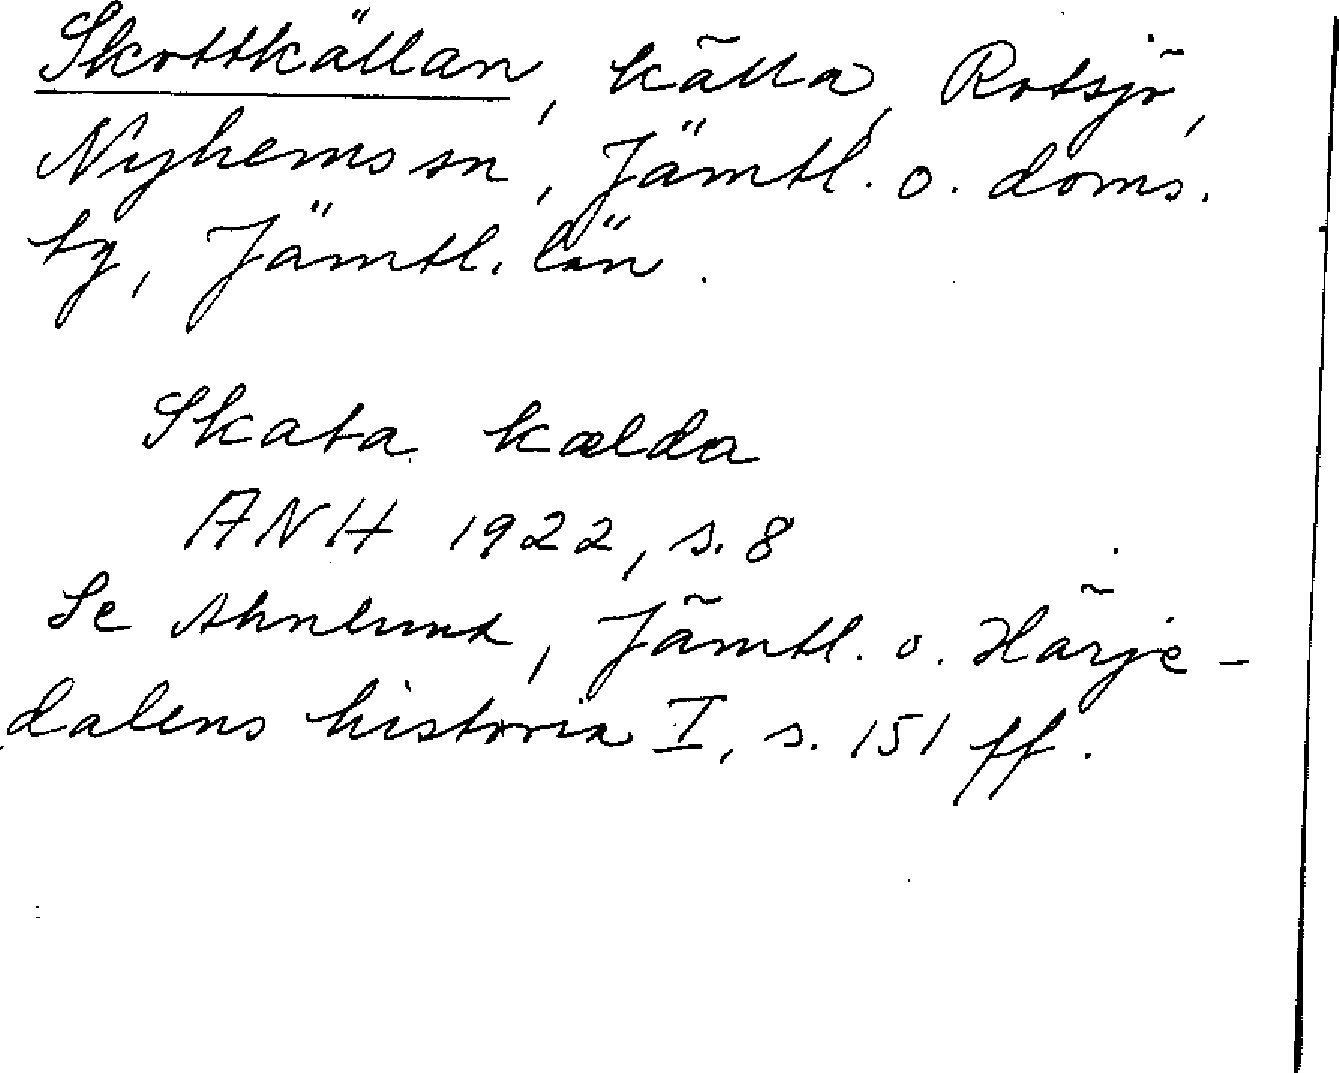 Skottkällan, källa, Rotsjö,
Nyhems sn, Jämtl. o. doms.
tg, Jämtl. län.
Skata kælda
ANH 1922, s. 8
Se Ahnlund, Jämtl. o. Härje-
dalens historia I, s. 151 ff.